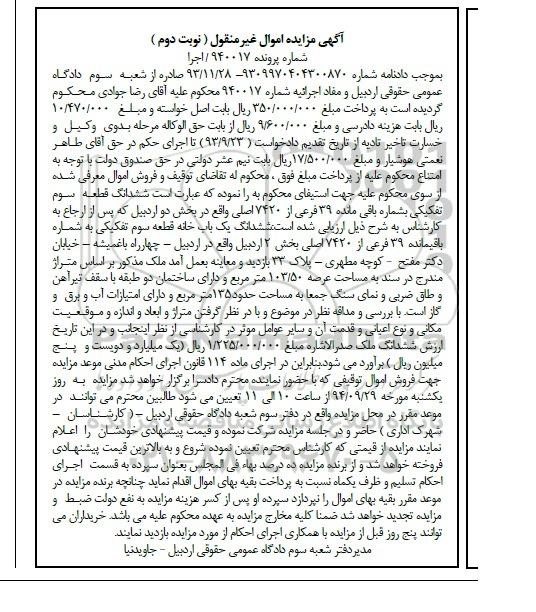 آگهی مزایده اموال غیرمنقول ( نوبت دوم )
شماره پرونده ۹۴۰۰۱۷ / اجرا
بموجب دادنامه شماره ۹۳۰۹۹۷۰۴۰۴۳۰۰۸۷۰– ۹۳/۱۱/۲۸ صادره از شعبه سوم دادگاه
عمومی حقوقی اردبیل و مفاد اجرائیه شماره ۹۴۰۰۱۷ محکوم علیه آقای رضا جوادی محکوم
گردیده است به پرداخت مبلغ ۳۵۰/۰۰۰/۰۰۰ ریال بابت اصل خواسته و مبلغ ۱۰/۴۷۰/۰۰۰
ریال بابت هزینه دادرسی و مبلغ ۹/۶۰۰/۰۰۰ ریال از بابت حق الوکاله مرحله بدوی وکیل و
خسارت تاخیر تادیه از تاریخ تقدیم دادخواست ( ۹۳/۹/۲۳ ) تا اجرای حکم در حق آقای طاهر
نعمتی هوشیار و مبلغ ۱۷/۵۰۰/۰۰۰ریال بابت نیم عشر دولتی در حق صندوق دولت با توجه به
امتناع محکوم علیه از پرداخت مبلغ فوق ، محکوم له تقاضای توقیف و فروش اموال معرفی شده
از سوی محکوم علیه جهت استیفای محکوم به را نموده که عبارت است ششدانگ قطعه سوم
تفکیکی بشماره باقی مانده ۳۹ فرعی از ۷۴۲۰ اصلی واقع در بخش دو اردبیل که پس از ارجاع به
کارشناس به شرح ذیل ارزیابی شده است:ششدانگ یک باب خانه قطعه سوم تفکیکی به شماره
باقیمانده ۳۹ فرعی از ۷۴۲۰ اصلی بخش ۲ اردبیل واقع در اردبیل – چهارراه باغمیشه – خیابان
دکتر مفتح - کوچه مطهری – پلاک ۳۳ بازدید و معاینه بعمل آمد ملک مذکور بر اساس متراژ
مندرج در سند به مساحت عرصه ۱۰۳/۵۰ متر مربع و دارای ساختمان دو طبقه با سقف تیرآهن
و طاق ضربی و نمای سنگ جمعا به مساحت حدود۱۳۵متر مربع و دارای امتیازات آب و برق و
گاز است. با بررسی و مداقه نظر در موضوع و با در نظر گرفتن متراژ و ابعاد و اندازه و موقعیت
مکانی و نوع اعیانی و قدمت آن و سایر عوامل موثر در کارشناسی از نظر اینجانب و در این تاریخ
ارزش ششدانگ ملک صدرالاشاره مبلغ ۱/۲۲۵/۰۰۰/۰۰۰ ریال (یک میلیارد و دویست و پنج
میلیون ریال ) برآورد می شودبنابراین در اجرای ماده ۱۱۴ قانون اجرای احکام مدنی موعد مزایده
جهت فروش اموال توقیفی که با حضور نماینده محترم دادسرا برگزار خواهد شد مزایده به روز
یکشنبه مورخه ۹۴/۰۹/۲۹ از ساعت ۱۰ الی ۱۱ تعیین می شود طالبین محترم می توانند در
موعد مقرر در محل مزایده واقع در دفتر سوم شعبه دادگاه حقوقی اردبیل – ( کارشناسان –
شهرک اداری ) حاضر و درجلسه مزایده شرکت نموده و قیمت پیشنهادی خودشان را اعلام
نمایند مزایده از قیمتی که کارشناس محترم تعیین نموده شروع و به بالاترین قیمت پیشنهادی
فروخته خواهد شد و از برنده مزایده ده درصد بهاء فی المجلس بعنوان سپرده به قسمت اجرای
احکام تسلیم و ظرف یکماه نسبت به پرداخت بقیه بهای اموال اقدام نماید چنانچه برنده مزایده در
موعد مقرر بقیه بهای اموال را نپردازد سپرده او پس از کسر هزینه مزایده به نفع دولت ضبط و
مزایده تجدید خواهد شد ضمنا کلیه مخارج مزایده به عهده محکوم علیه می باشد. خریداران می
توانند پنج روز قبل از مزایده با همکاری اجرای احکام از مورد مزایده بازدید نمایند.
مدیردفتر شعبه سوم دادگاه عمومی حقوقی اردبیل - جاویدنیا